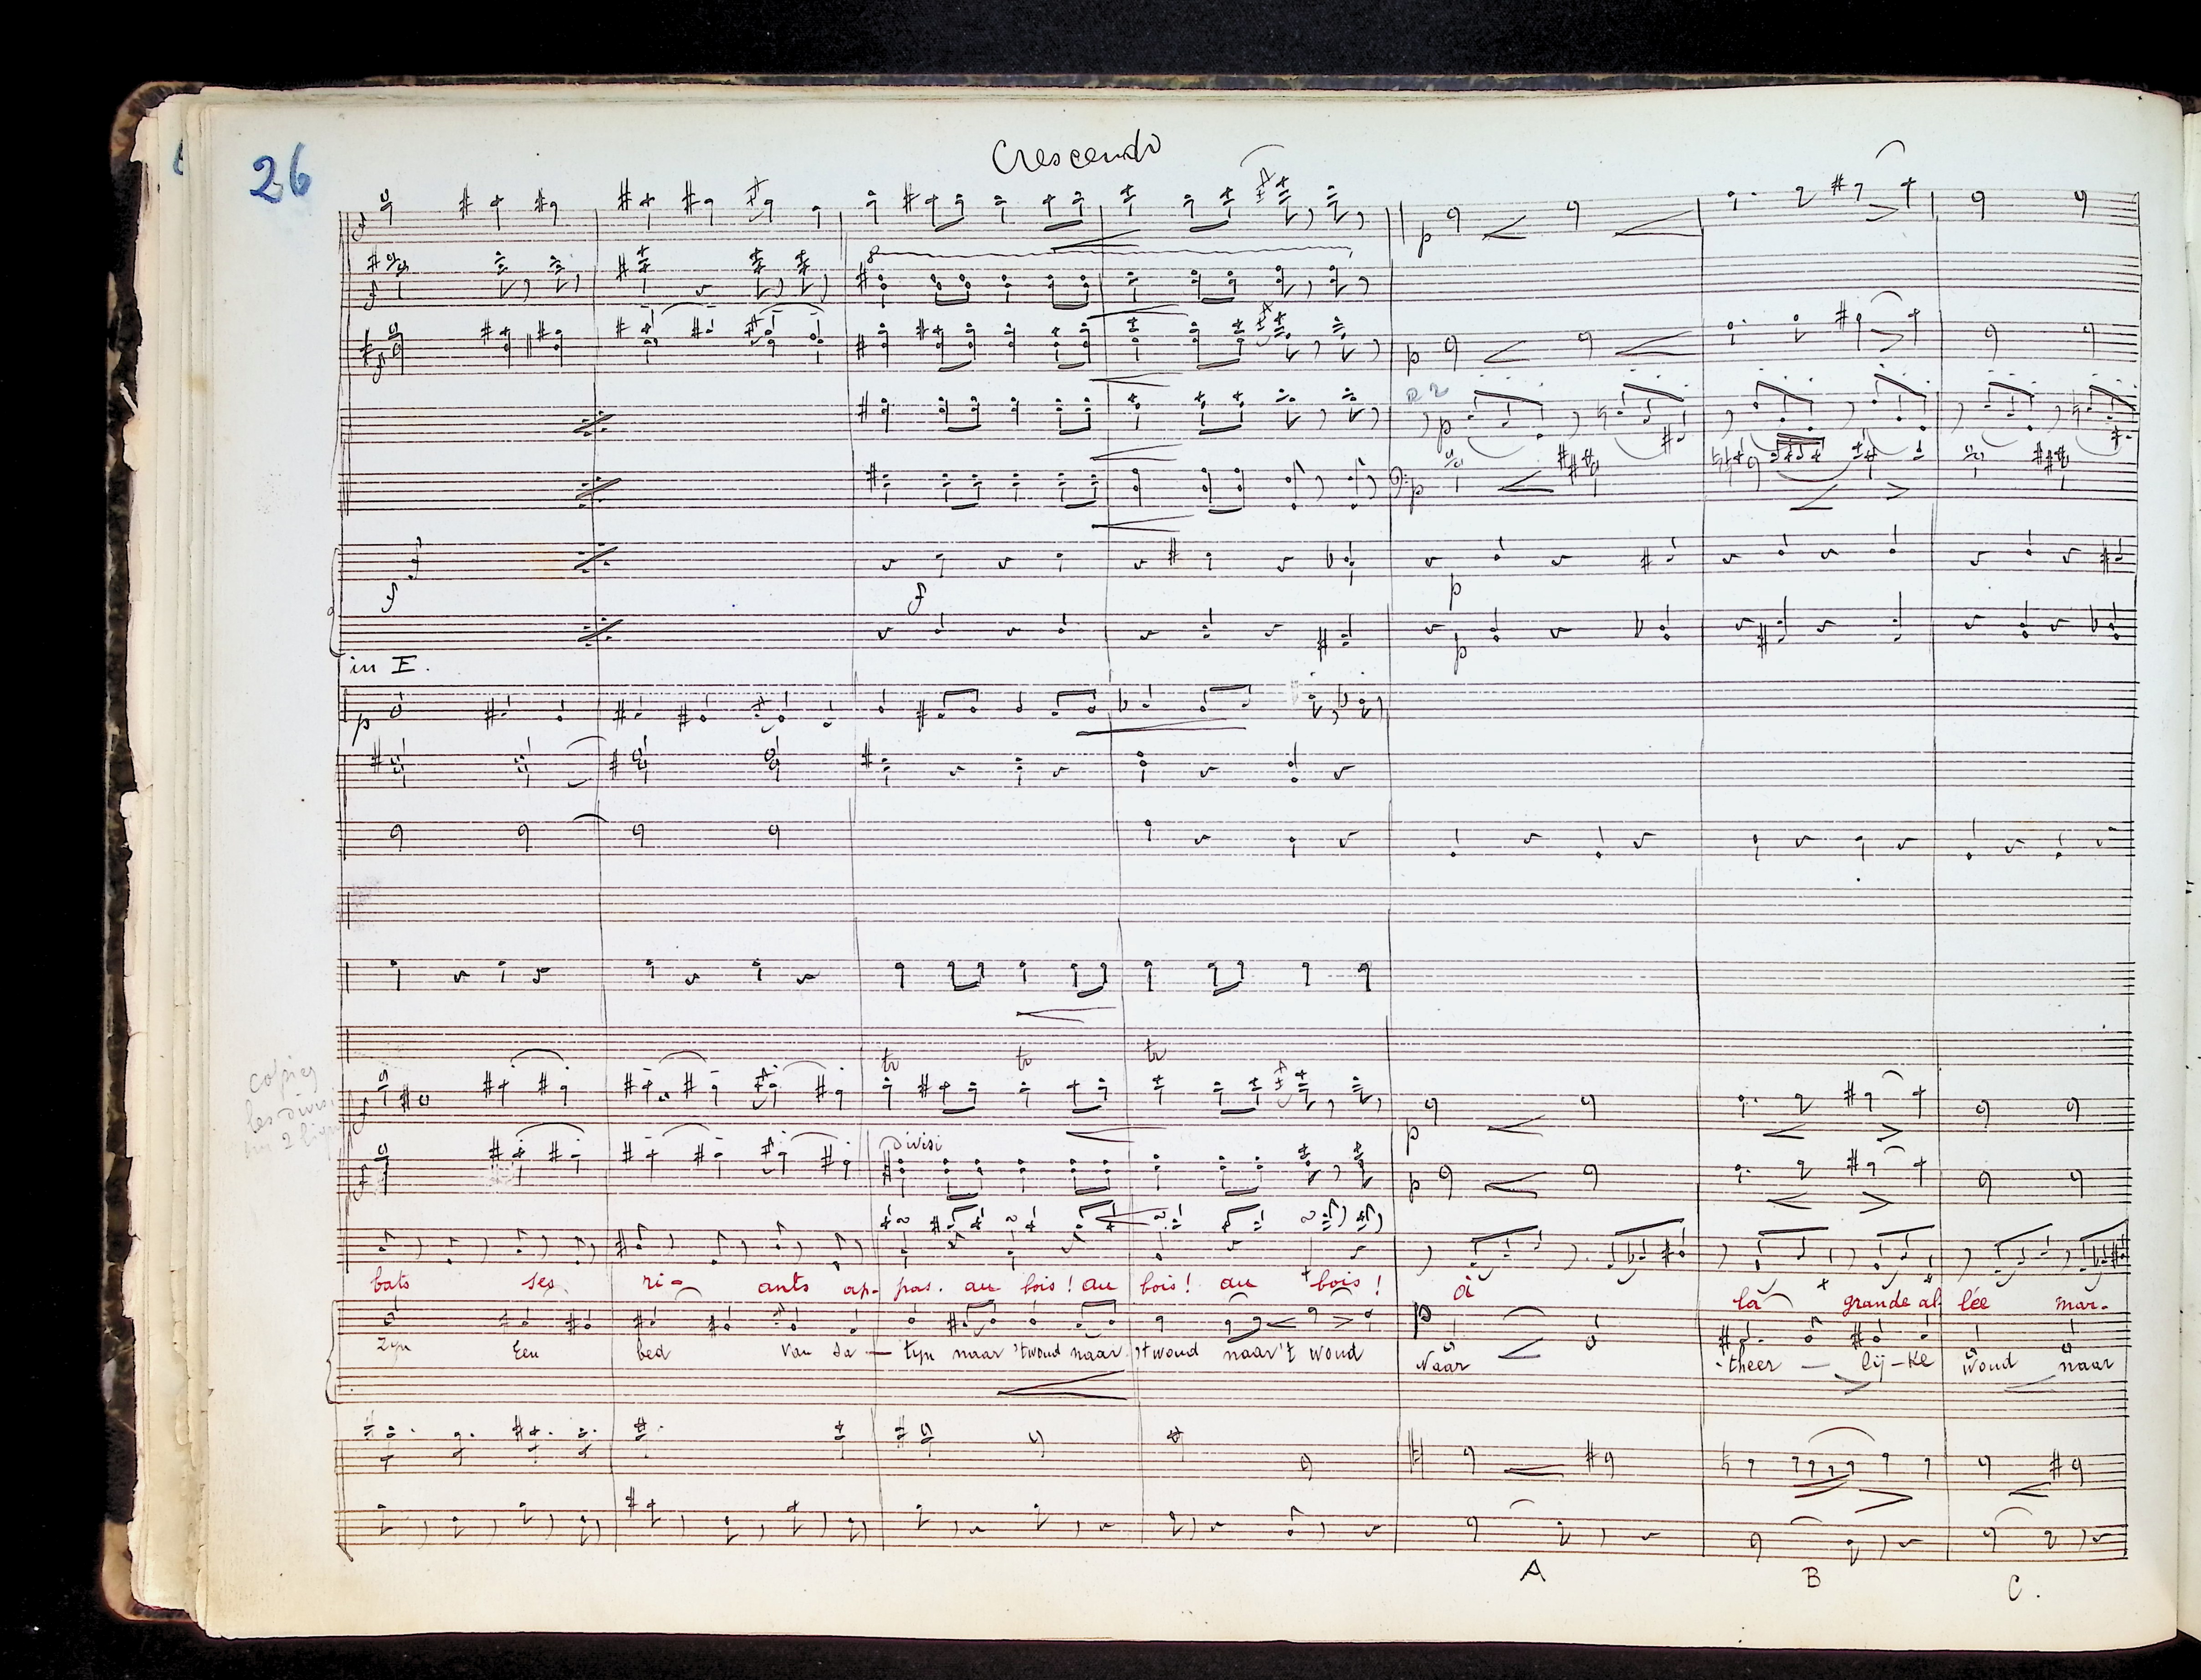 26
Crescendo
f
p
f
8
f
p
a 2
p
p
f
f
p
p
in E.
p
copier
les divisi
sur 2 lignes
tr tr tr
f
p
divisi
f
p
bats ses ri- ants ap- pas. au bois! au bois! au bois! Oi la grande al lée mar-
p
Zyn Een bed Van sa — tyn naar 't woud naar 't woud naar 't woud Naar 'theer — lij-ke woud naar
A B C.